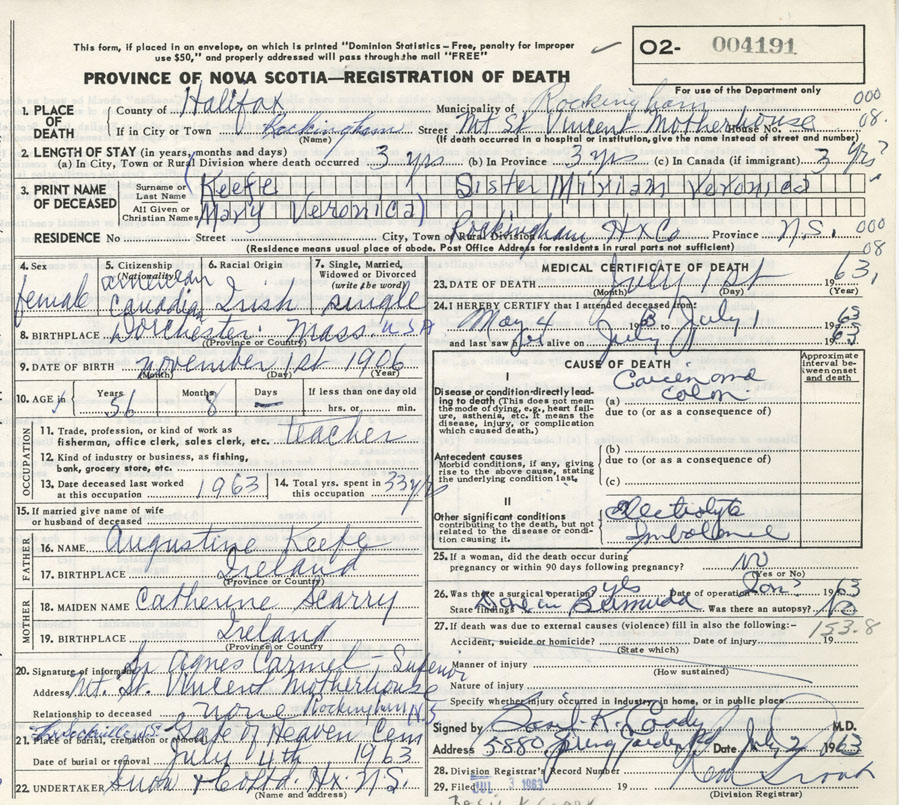 This form, if placed in an envelope, on which is printed "Dominion Statistics – Free, penalty for improper
use $50," and properly addressed will pass through the mail "FREE"
O2- 004191
PROVINCE OF NOVA SCOTIA—REGISTRATION OF DEATH
For use of the Department only
1. PLACE OF DEATH
County of Halifax Municipality of Rockingham 000
If in City or Town Rockingham Street Mt St Vincent Motherhouse House No. 08.
(Name) (If death occurred in a hospital or institution, give the name instead of street and number)
2. LENGTH OF STAY (in years, months and days)
(a) In City, Town or Rural Division where death occurred 3 yrs (b) In Province 3 yrs (c) In Canada (if immigrant) 3 yrs?
3. PRINT NAME OF DECEASED
Surname or Last Name (Keefe Sister Miriam Veronica
All Given or Christian Names Mary Veronica)
RESIDENCE No Street City, Town or Rural Rockingham Hx Co Province N.S. 000
(Residence means usual place of abode. Post Office Address for residents in rural parts not sufficient) 08
4. Sex female
5. Citizenship (Nationality) American Canadian
6. Racial Origin Irish
7. Single, Married, Widowed or Divorced (write the word) single
8. BIRTHPLACE Dorchester Mass. USA
(Province or Country)
9. DATE OF BIRTH November 1st 1906
(Month) (Day) (Year)
10. AGE in Years 56 Months 8 Days — If less than one day old hrs. or min.
OCCUPATION
11. Trade, profession, or kind of work as
fisherman, office clerk, sales clerk, etc. teacher
12. Kind of industry or business, as fishing,
bank, grocery store, etc.
13. Date deceased last worked at this occupation 1963
14. Total yrs. spent in this occupation 33 yrs
15. If married give name of wife
or husband of deceased
FATHER
16. NAME Augustine Keefe
17. BIRTHPLACE Ireland
(Province or Country)
MOTHER
18. MAIDEN NAME Catherine Scarry
19. BIRTHPLACE Ireland
(Province or Country)
20. Signature of informant Sr Agnes Carmel – Superior
Address Mt. St. Vincent Motherhouse
Relationship to deceased none Rockingham N.S
21. Place of burial, cremation or removal Gate of Heaven Cem
Date of burial or removal July 4th 1963
22. UNDERTAKER Snow & Co Ltd. Hx. N.S.
(Name and address)
MEDICAL CERTIFICATE OF DEATH
23. DATE OF DEATH July 1st 1963
(Month) (Day) (Year)
24. I HEREBY CERTIFY that I attended deceased from:
May 4 1963 to July 1 1963
and last saw alive on July 1963
CAUSE OF DEATH
Approximate interval between onset and death
I
Disease or condition directly leading to death (This does not mean the mode of dying, e.g., heart failure, asthenia, etc. It means the disease, injury, or complication which caused death.)
(a) Carcinoma colon
due to (or as a consequence of)
Antecedent causes
Morbid conditions, if any, giving rise to the above cause, stating the underlying condition last.
(b)
due to (or as a consequence of)
(c)
II
Other significant conditions
contributing to the death, but not related to the disease or condition causing it.
Electrolyte Imbalance
25. If a woman, did the death occur during
pregnancy or within 90 days following pregnancy? No
(Yes or No)
26. Was there a surgical operation? yes Date of operation 1963
State findings Done in Bermuda Was there an autopsy? No
27. If death was due to external causes (violence) fill in also the following:– 153.8
Accident, suicide or homicide? Date of injury 19
(State which)
Manner of injury
(How sustained)
Nature of injury
Specify whether injury occurred in Industry, in home, or in public place
Signed by Basil K. Coady M.D.
Address 5880 Spring Garden Rd Date July 2 1963
28. Division Registrar's Record Number
29. Filed JUL 3 1963 19
(Division Registrar)